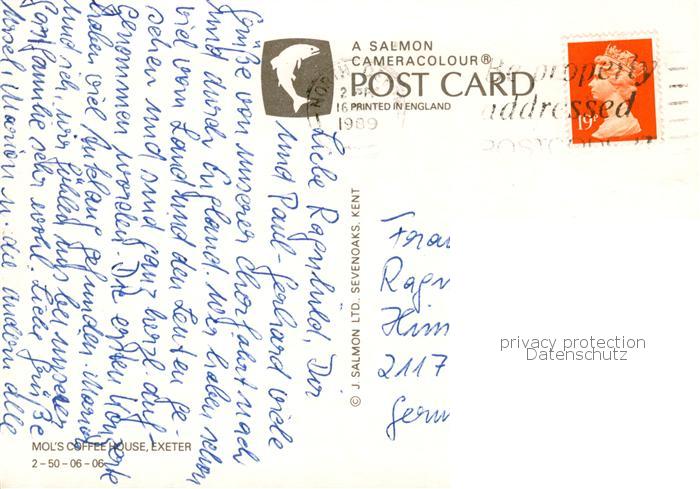 A SALMON
CAMERACOLOUR®
POST CARD
PRINTED IN ENGLAND
1989
Be property
addressed
POSTCODE IT
19P
Liebe Ragnhild, Dir
und Paul-Gerhard viele
Grüße von unserer Chorfahrt nach
und durch England. Wir haben schon
viel vom Land und den Leuten ge-
sehen und sind ganz herzl. auf-
genommen worden. Die ersten Konzerte
haben viel Anklang gefunden. Marion
und ich, wir fühlen uns bei unserer
Gastfamilie sehr wohl. Liebe Grüße
Marion u. die andern alle
© J. SALMON LTD. SEVENOAKS. KENT
Frau
Ragn
Him
2117
Germ
privacy protection
Datenschutz
MOL'S COFFEE HOUSE, EXETER
2-50-06-06